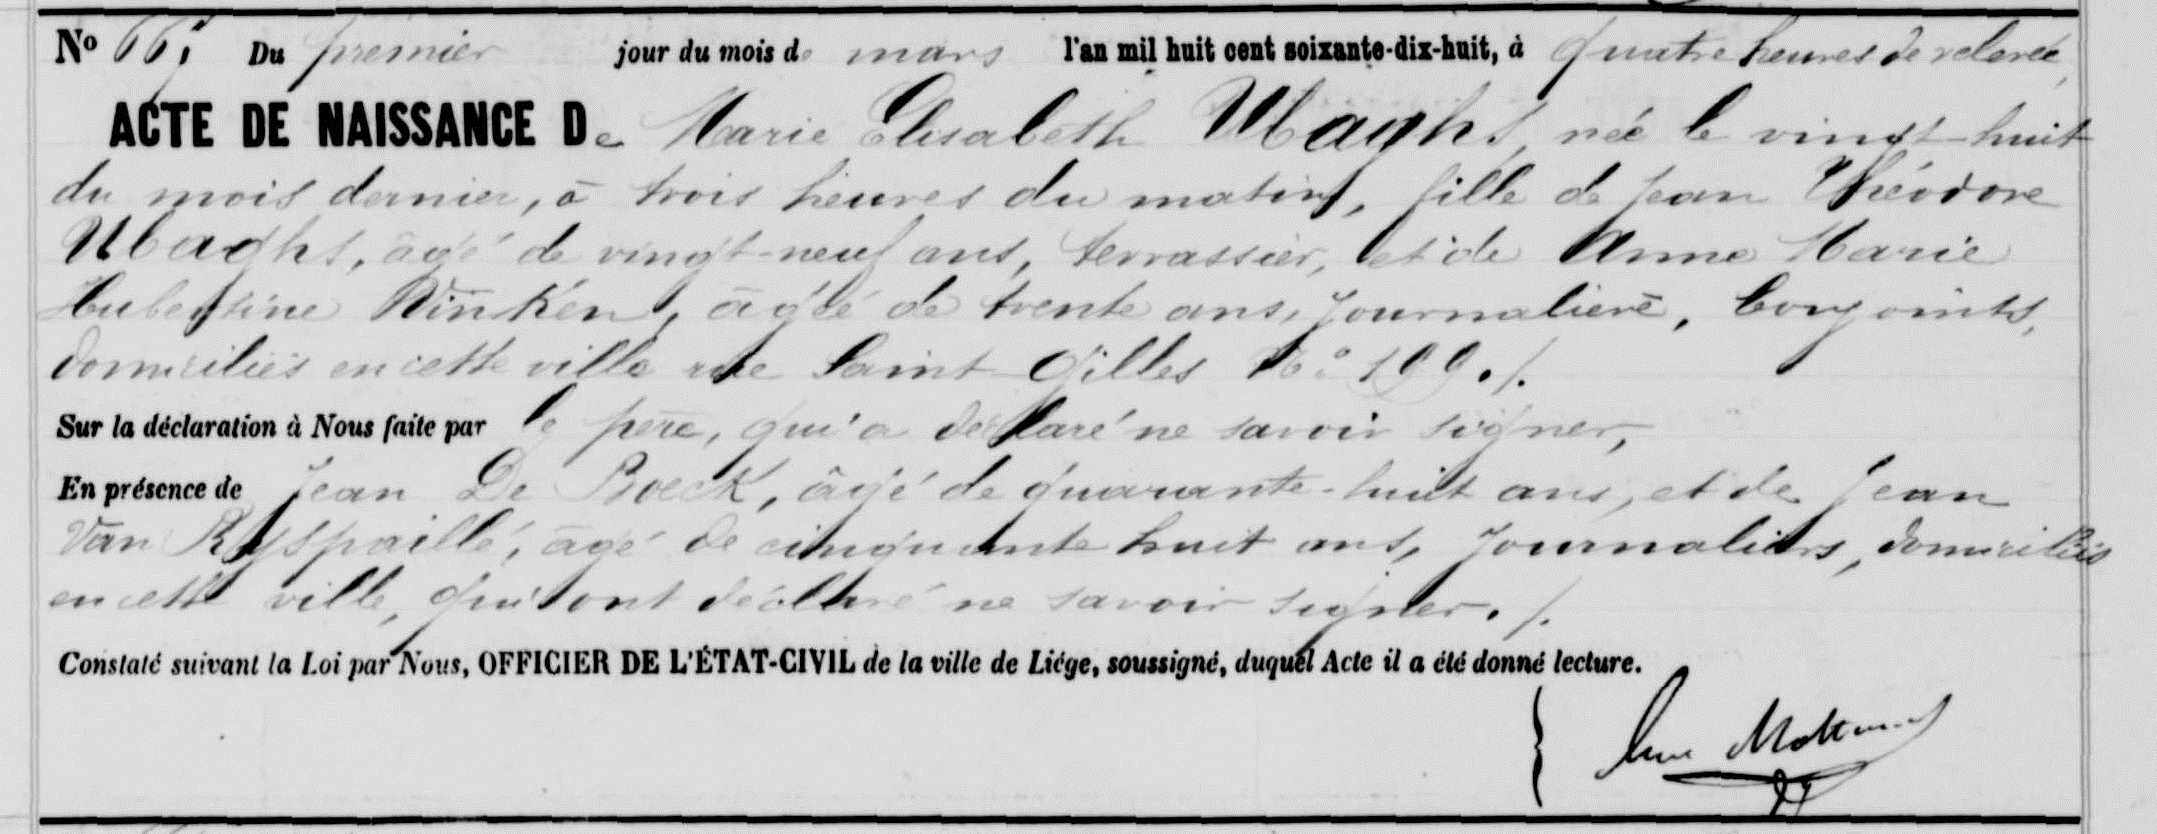 No 665 Du premier jour du mois de mars l'an mil huit cent soixante-dix-huit, à quatre heures de relevée,
ACTE DE NAISSANCE De Marie Elisabeth Ubaghs, née le vingt-huit
du mois dernier, à trois heures du matin, fille de Jean Théodore
Ubaghs, âgé de vingt-neuf ans, terrassier, et de Anne Marie
Hubertine Rinken, âgée de trente ans, journalière, conjoints,
domiciliés en cette ville rue Saint Gilles No 199./.
Sur la déclaration à Nous faite par le père, qui a déclaré ne savoir signer,
En présence de Jean De Boeck, âgé de quarante-huit ans, et de Jean
Van Ryspaillé, âgé de cinquante huit ans, journaliers, domiciliés
en cette ville, qui ont déclaré ne savoir signer./.
Constaté suivant la Loi par Nous, OFFICIER DE L'ÉTAT-CIVIL de la ville de Liége, soussigné, duquel Acte il a été donné lecture.